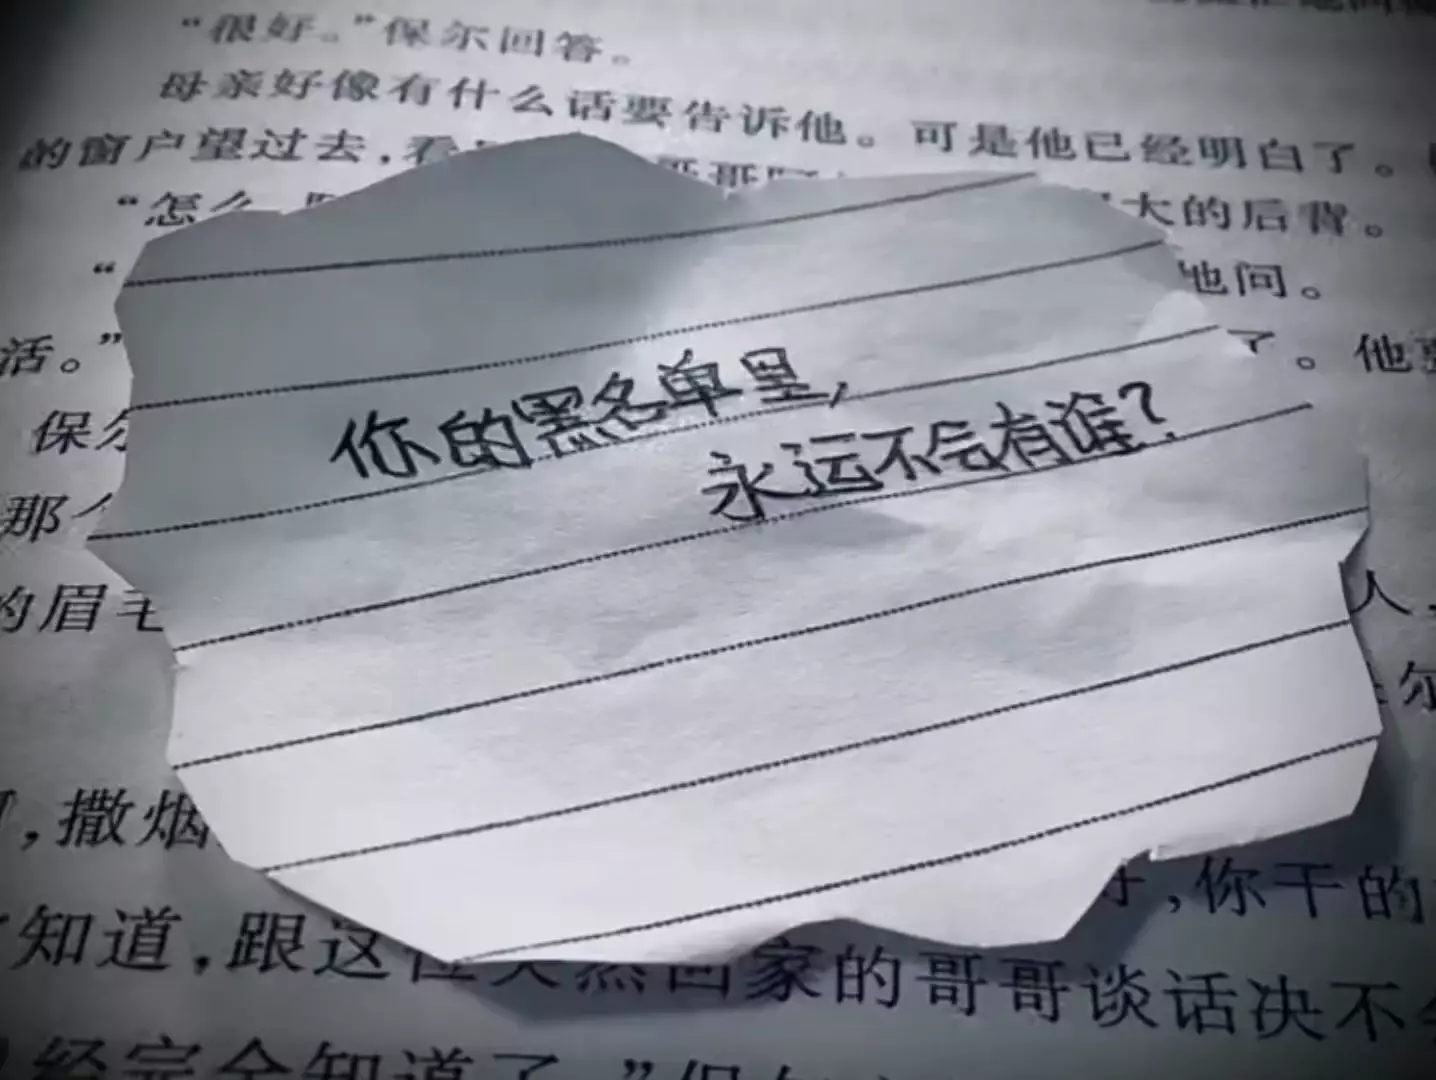 “很好。”保尔回答。
母亲好像有什么话要告诉他。可是他已经明白了。
的窗户望过去，看
大的后背。
“怎么
地问。
活。”
了。他要
保尔
你的黑名单里，
永远不会有谁？
那个
的眉毛
人，
，撒烟
，你干的
知道，跟这位突然回家的哥哥谈话决不
经完全知道了。”保尔